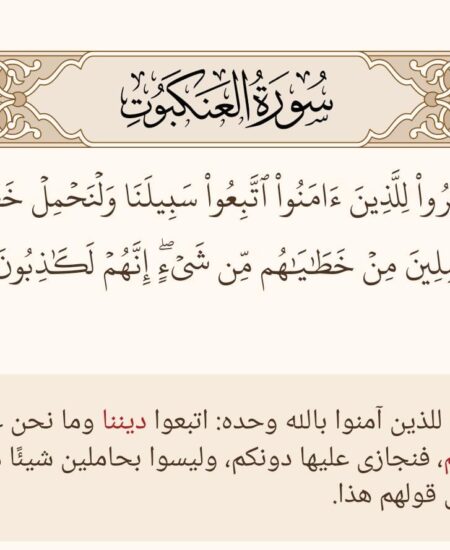 سُورَةُ العَنكَبُوتِ
لِلَّذِينَ ءَامَنُواْ ٱتَّبِعُواْ سَبِيلَنَا وَلۡنَحۡمِلۡ
مِنۡ خَطَٰيَٰهُم مِّن شَيۡءٍۖ إِنَّهُمۡ لَكَٰذِبُونَ
للذين آمنوا بالله وحده: اتبعوا ديننا وما نحن
، فنجازى عليها دونكم، وليسوا بحاملين شيئًا
قولهم هذا.